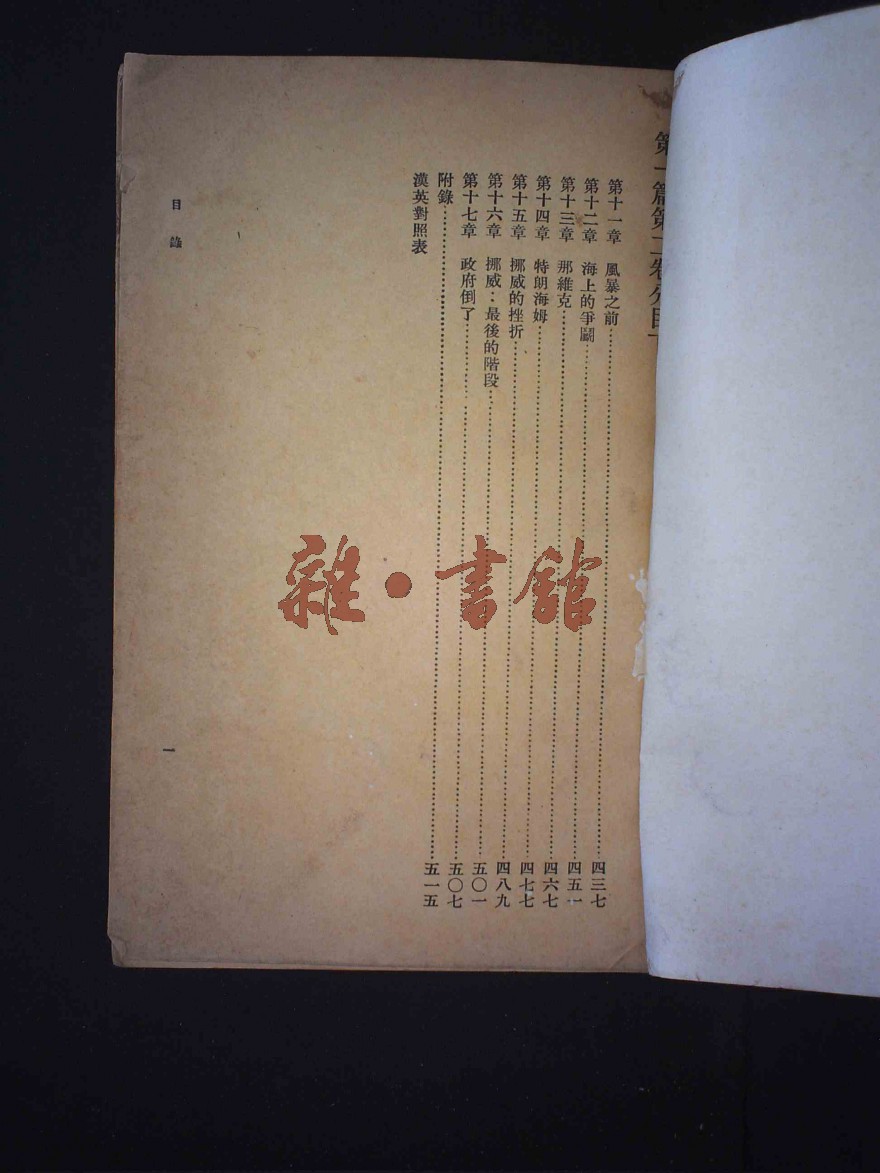 第一篇第二卷分目下
第十一章 風暴之前 四三七
第十二章 海上的爭鬭 四五一
第十三章 那維克 四六七
第十四章 特朗海姆 四七七
第十五章 挪威的挫折 四八九
第十六章 挪威：最後的階段 五〇一
第十七章 政府倒了 五〇七
附錄 五一五
漢英對照表
目錄
一
雜·書館